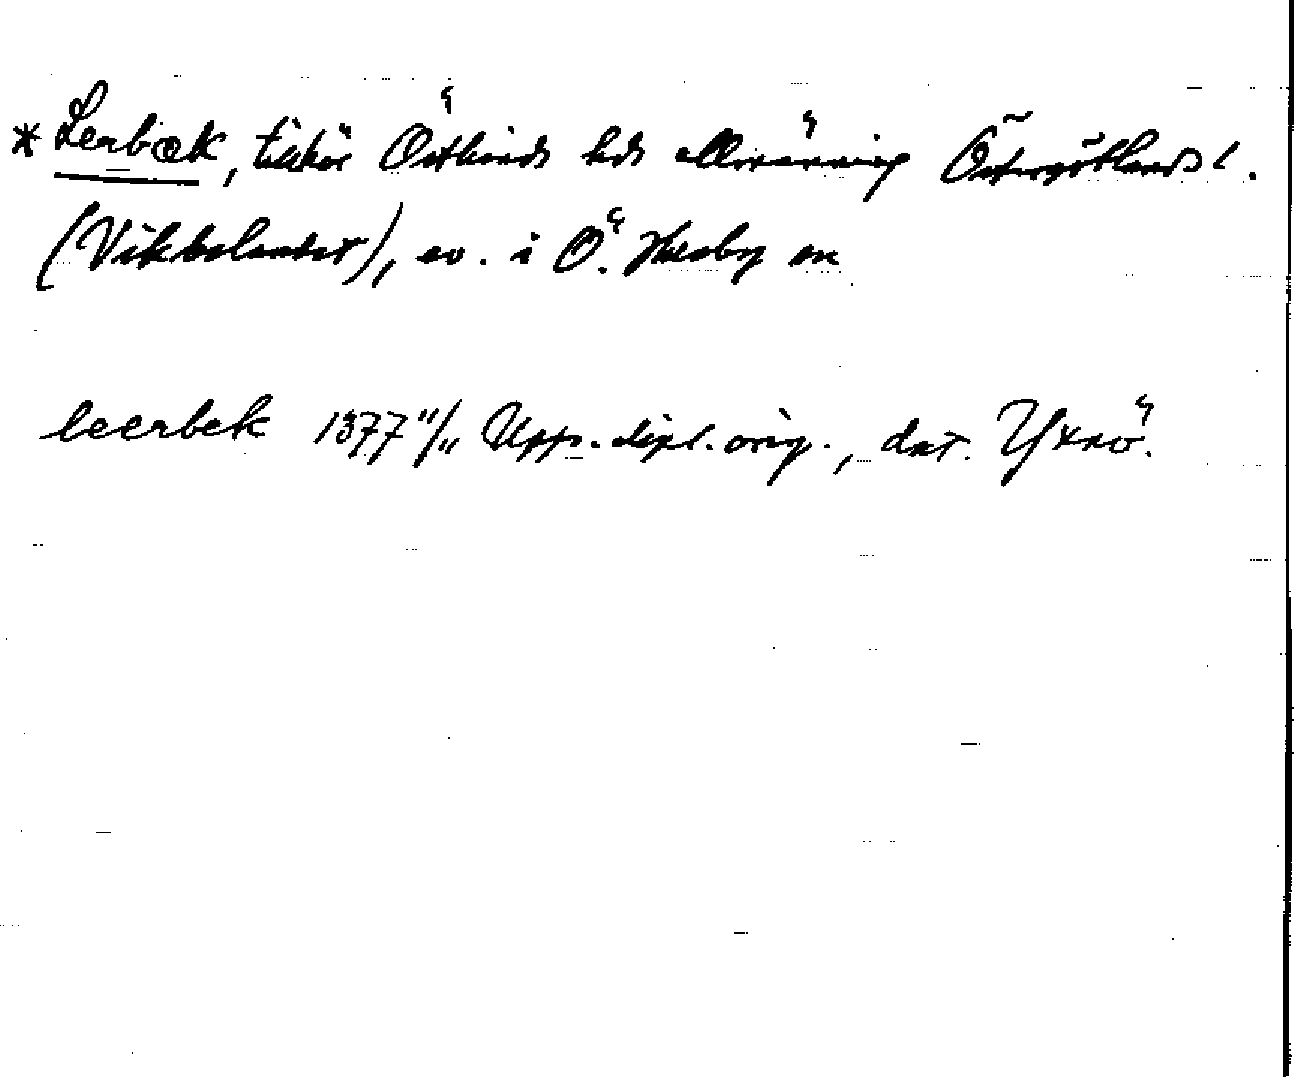 *Lerbæk, tidhör Östkinds hds allmänning Östergötlands l.
(Vikbolandet), ev. i Ö. Husby sn
leerbek 1377 11/11 Upps. dipl. orig., dat. Yxnö.